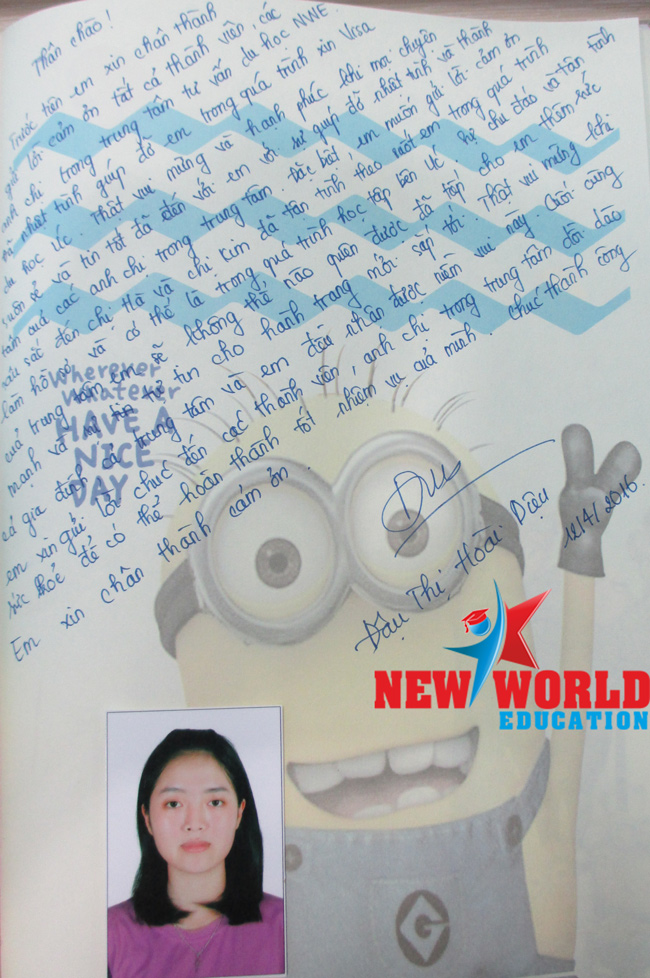 Thân chào!
Trước tiên em xin chân thành
gửi lời cảm ơn tất cả thành viên, các
anh chị trong trung tâm tư vấn du học NWE.
đã nhiệt tình giúp đỡ em trong quá trình xin Visa
du học Úc. Thật vui mừng và hạnh phúc khi mọi chuyện
suôn sẻ và tin tốt đã đến với em với sự giúp đỡ nhiệt tình và thành
tâm của các anh chị trong trung tâm. Đặc biệt, em muốn gửi lời cảm ơn
sâu sắc đến chị Hà và chị Kim đã tận tình theo suốt em trong quá trình
làm hồ sơ và có thể là trong quá trình học tập bên Úc. Sự chu đáo và tận tình
của trung tâm em sẽ không thể nào quên được đã tiếp cho em thêm sức
mạnh và sự tự tin cho hành trang mới sắp tới. Thật vui mừng khi
cả gia đình, cả trung tâm và em đều nhận được niềm vui này. Cuối cùng
em xin gửi lời chúc đến các thành viên, anh chị trong trung tâm dồi dào
sức khoẻ để có thể hoàn thành tốt nhiệm vụ của mình. Chúc thành công
Em xin chân thành cảm ơn.
Wherever
Whatever
HAVE A
NICE
DAY
Đậu Thị Hoài Diệu
12/4/2016.
NEW WORLD
EDUCATION
G